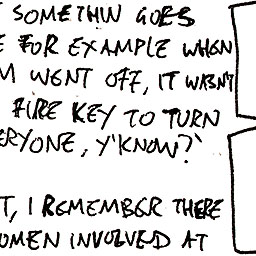 SOMETHIN GOES
FOR EXAMPLE WHEN
WENT OFF, IT WASN'T
FIRE KEY TO TURN
ERYONE, Y'KNOW?
T, I REMEMBER THERE
OMEN INVOLVED AT